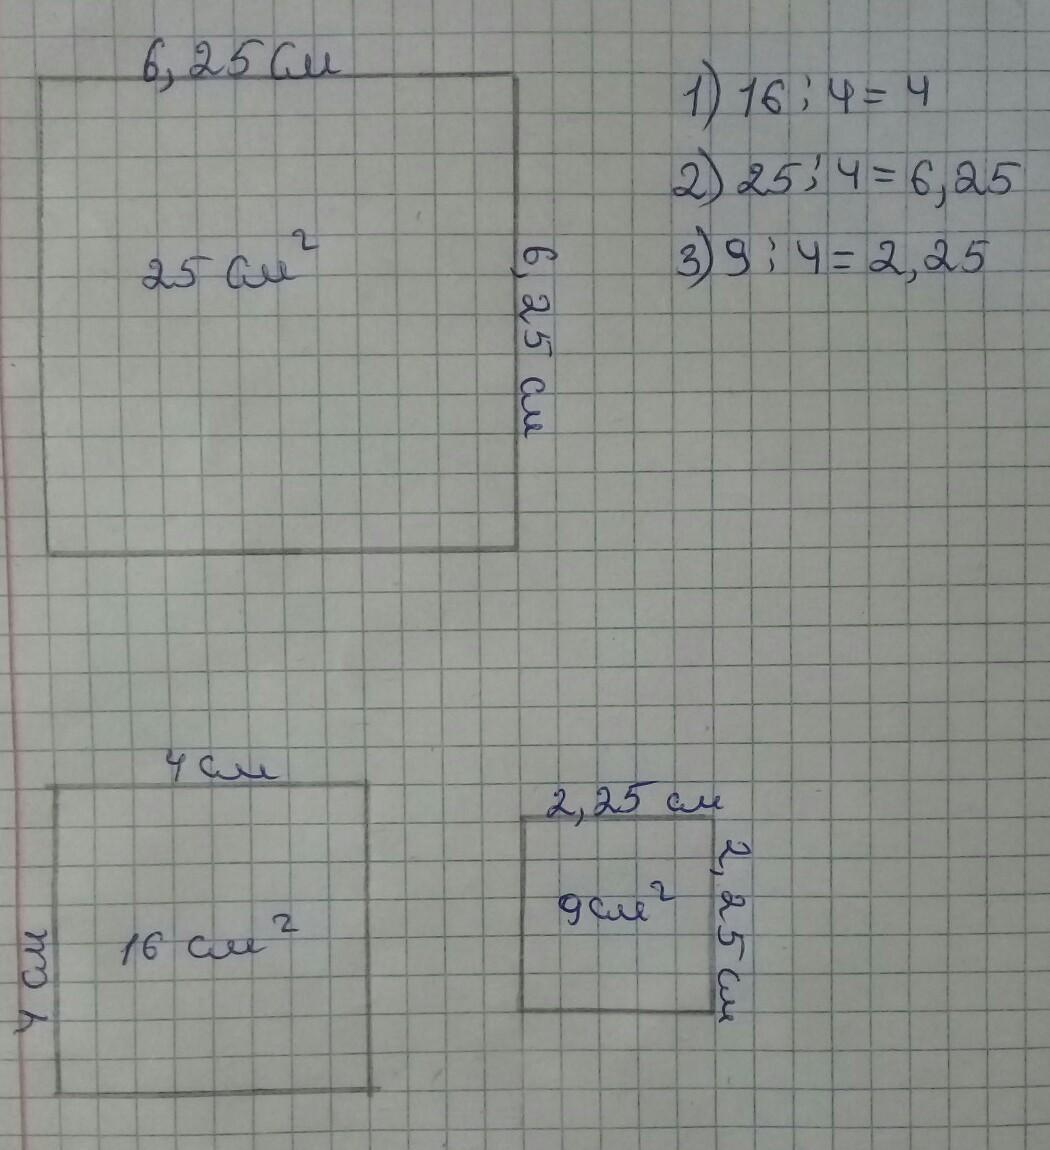 6,25 см
25 см²
6,25 см
1) 16 : 4 = 4
2) 25 : 4 = 6,25
3) 9 : 4 = 2,25
4 см
4 см
16 см²
2,25 см
9 см²
2,25 см